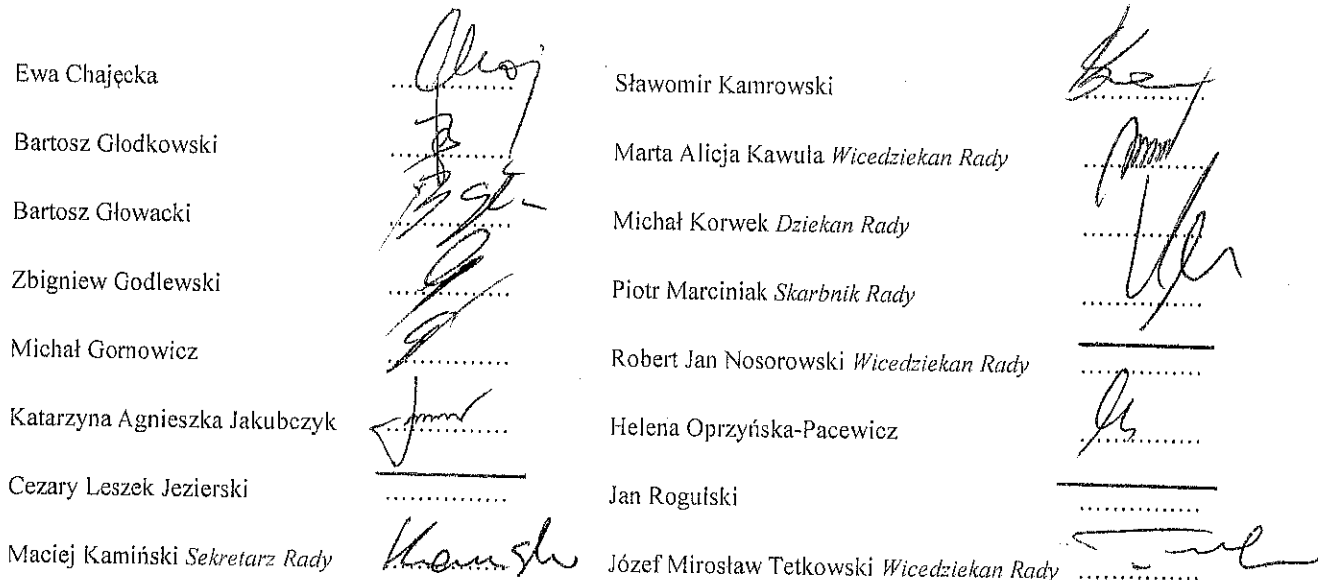 Ewa Chajęcka ..............
Bartosz Głodkowski ..............
Bartosz Głowacki ..............
Zbigniew Godlewski ..............
Michał Gornowicz ..............
Katarzyna Agnieszka Jakubczyk ..............
Cezary Leszek Jezierski ..............
Maciej Kamiński Sekretarz Rady ..............
Sławomir Kamrowski ..............
Marta Alicja Kawula Wicedziekan Rady ..............
Michał Korwek Dziekan Rady ..............
Piotr Marciniak Skarbnik Rady ..............
Robert Jan Nosorowski Wicedziekan Rady ..............
Helena Oprzyńska-Pacewicz ..............
Jan Rogulski ..............
Józef Mirosław Tetkowski Wicedziekan Rady ..............